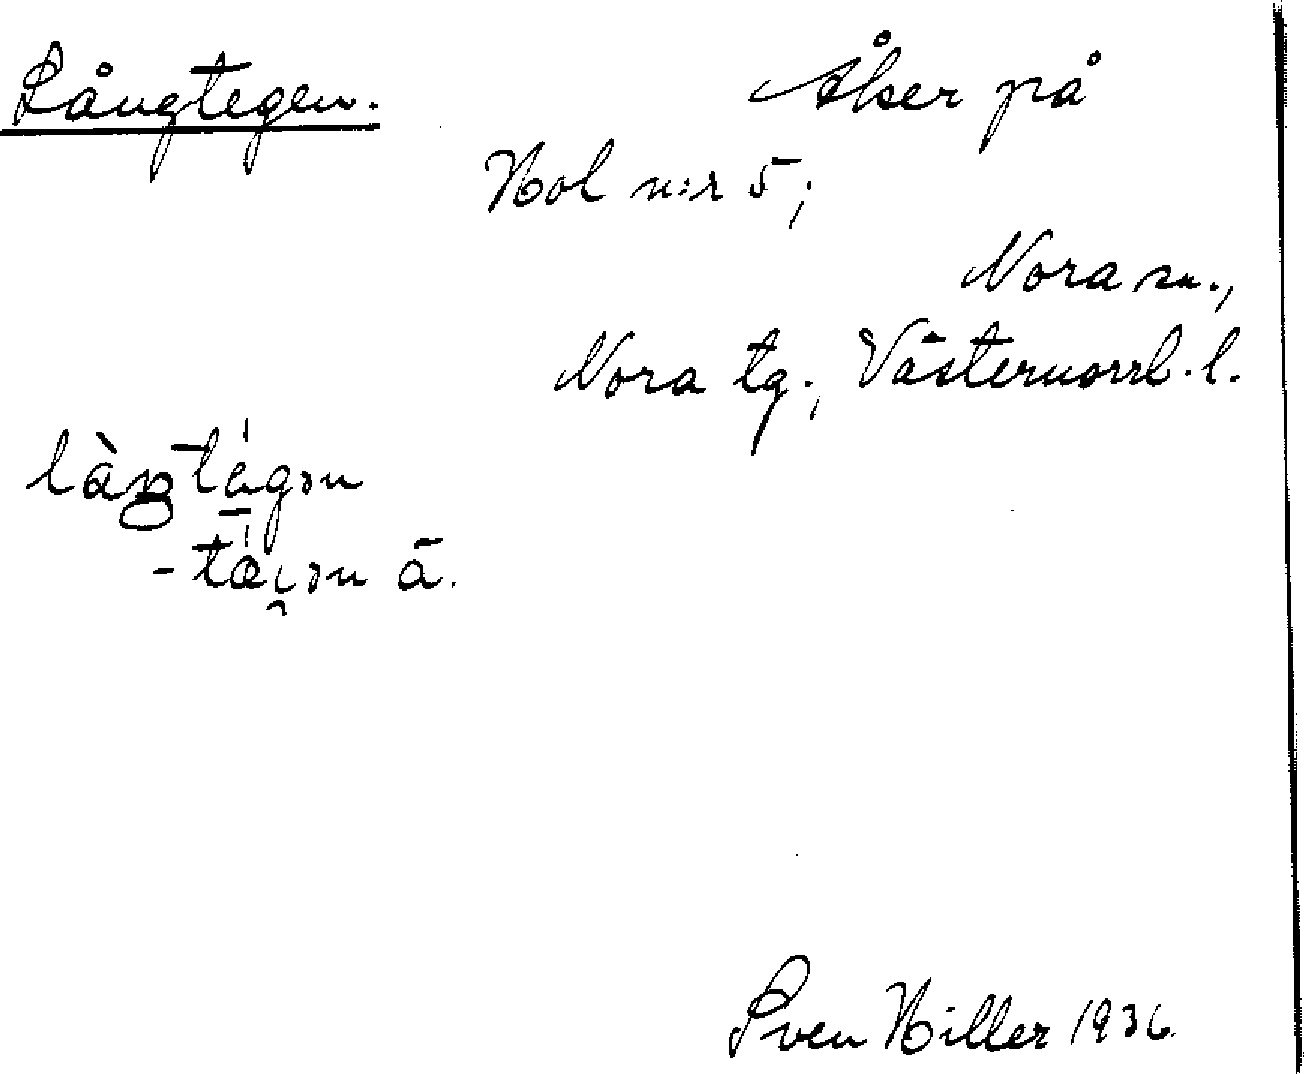 Långtegen. Åker på
Hol n:r 5;
Nora sn.,
Nora tg., Västernorrl. l.
Sven Hiller 1936.